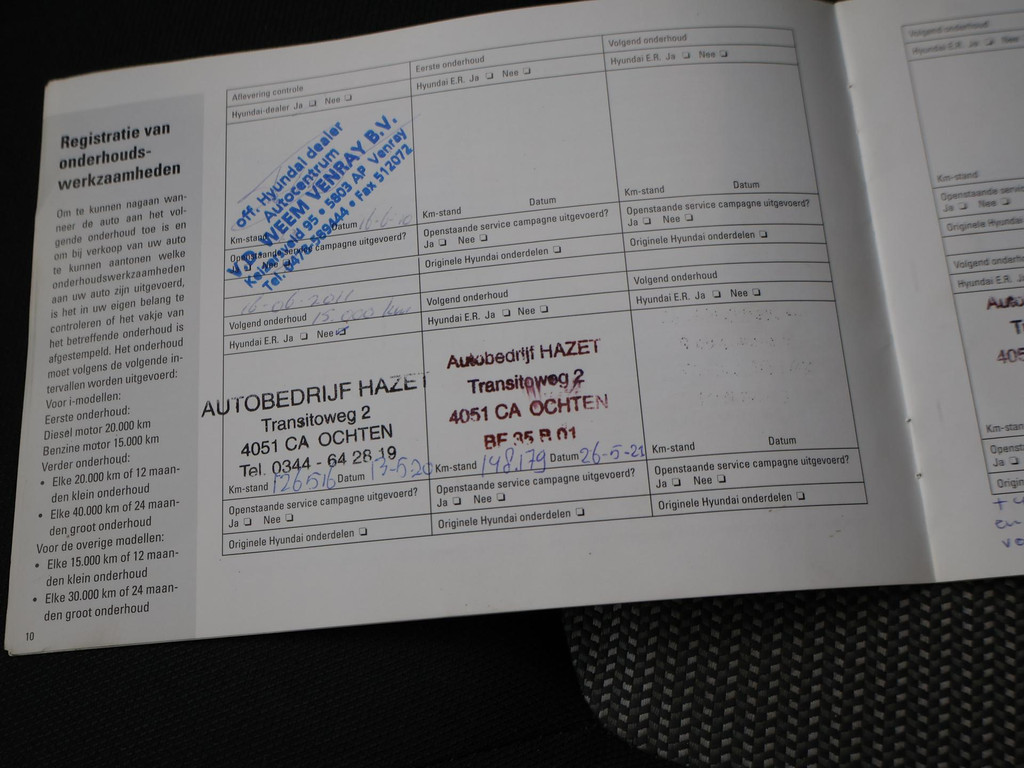 Registratie van
onderhouds-
werkzaamheden
Om te kunnen nagaan wan-
neer de auto aan het vol-
gende onderhoud toe is en
om bij verkoop van uw auto
te kunnen aantonen welke
onderhoudswerkzaamheden
aan uw auto zijn uitgevoerd,
is het in uw eigen belang te
controleren of het vakje van
het betreffende onderhoud is
afgestempeld. Het onderhoud
moet volgens de volgende in-
tervallen worden uitgevoerd:
Voor i-modellen:
Eerste onderhoud:
Diesel motor 20.000 km
Benzine motor 15.000 km
Verder onderhoud:
• Elke 20.000 km of 12 maan-
den klein onderhoud
• Elke 40.000 km of 24 maan-
den groot onderhoud
Voor de overige modellen:
• Elke 15.000 km of 12 maan-
den klein onderhoud
• Elke 30.000 km of 24 maan-
den groot onderhoud
10
Aflevering controle
Hyundai-dealer Ja ❏ Nee ❏
off. Hyundai dealer
Autocentrum
WEEM VENRAY B.V.
95 • 5803 AP Venray
Tel. 0478 • Fax 512072
Km-stand Datum 16-6-10
Openstaande service campagne uitgevoerd?
16-06-2011
15.000 km
Eerste onderhoud
Hyundai E.R. Ja ❏ Nee ❏
Km-stand Datum
Openstaande service campagne uitgevoerd?
Ja ❏ Nee ❏
Originele Hyundai onderdelen ❏
Volgend onderhoud
Hyundai E.R. Ja ❏ Nee ❏
Km-stand Datum
Openstaande service campagne uitgevoerd?
Ja ❏ Nee ❏
Originele Hyundai onderdelen ❏
Volgend onderhoud
Hyundai E.R. Ja ❏ Nee ❏
AUTOBEDRIJF HAZET
Transitoweg 2
4051 CA OCHTEN
Tel. 0344 - 64 28 19
Km-stand 126516 Datum 13-5-20
Openstaande service campagne uitgevoerd?
Ja ❏ Nee ❏
Originele Hyundai onderdelen ❏
Volgend onderhoud
Hyundai E.R. Ja ❏ Nee ❏
Autobedrijf HAZET
Transitoweg 2
4051 CA OCHTEN
BE 35 R 01
Km-stand 148,179 Datum 26-5-21
Openstaande service campagne uitgevoerd?
Ja ❏ Nee ❏
Originele Hyundai onderdelen ❏
Volgend onderhoud
Hyundai E.R. Ja ❏ Nee ❏
Km-stand Datum
Openstaande service campagne uitgevoerd?
Ja ❏ Nee ❏
Originele Hyundai onderdelen ❏
Volgend onderhoud
Hyundai E.R. Ja ❏ Nee ❏
Km-stand
Openstaande service
Ja ❏ Nee ❏
Originele Hyundai
Volgend onderhoud
Hyundai E.R. Ja ❏
Km-stand
Ja ❏